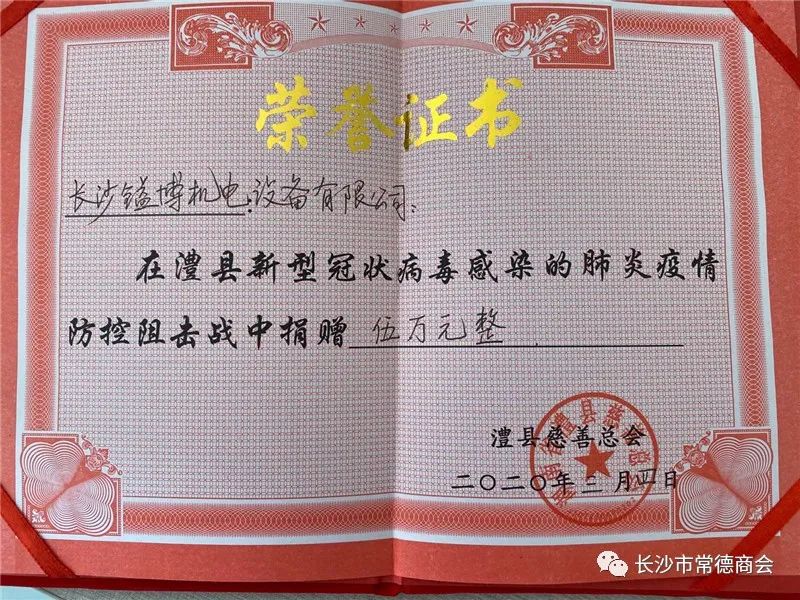 荣誉证书
长沙镒博机电设备有限公司:
在澧县新型冠状病毒感染的肺炎疫情
防控阻击战中捐赠 伍万元整
澧县慈善总会
二〇二〇年三月四日
湖南省澧县慈善总会
长沙市常德商会